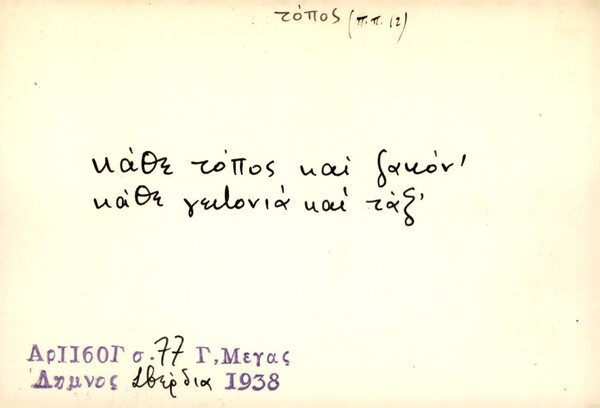 τόπος (π.π. 12)
κάθε τόπος καί ζακόν'
κάθε γειτονιά καί τάξ'
Αρ1160Γ σ. 77 Γ, Μεγας
Λημνος Σβέρδια 1938